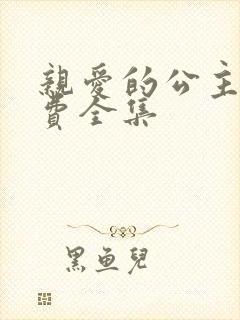 親愛的公主
費全集
黑魚兒